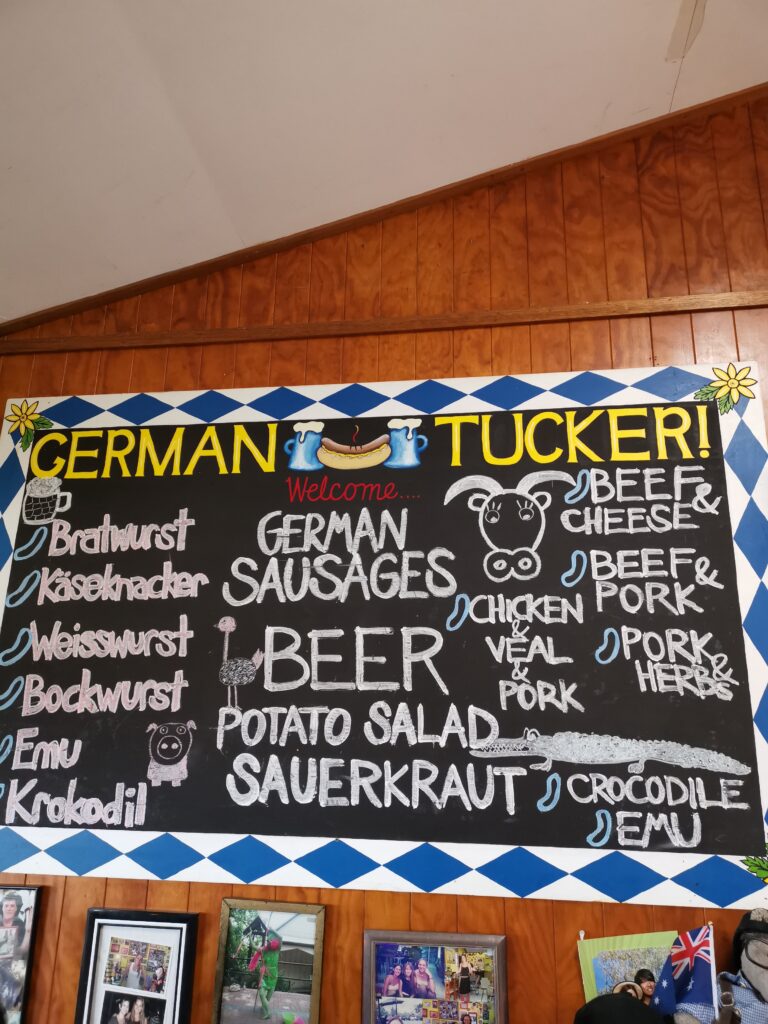 GERMAN TUCKER!
Welcome....
Bratwurst
Käseknacker
Weisswurst
Bockwurst
Emu
Krokodil
GERMAN
SAUSAGES
BEER
POTATO SALAD
SAUERKRAUT
BEEF &
CHEESE
BEEF &
PORK
CHICKEN
&
VEAL
&
PORK
PORK &
HERBS
CROCODILE
EMU